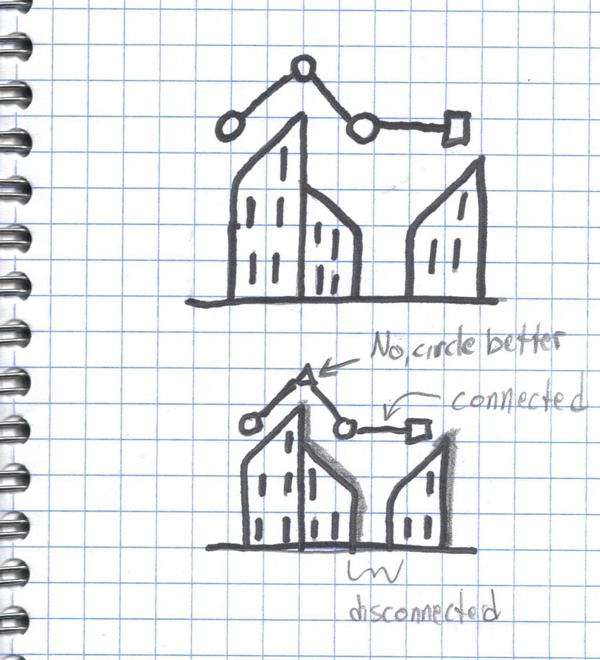 No, circle better
connected
disconnected